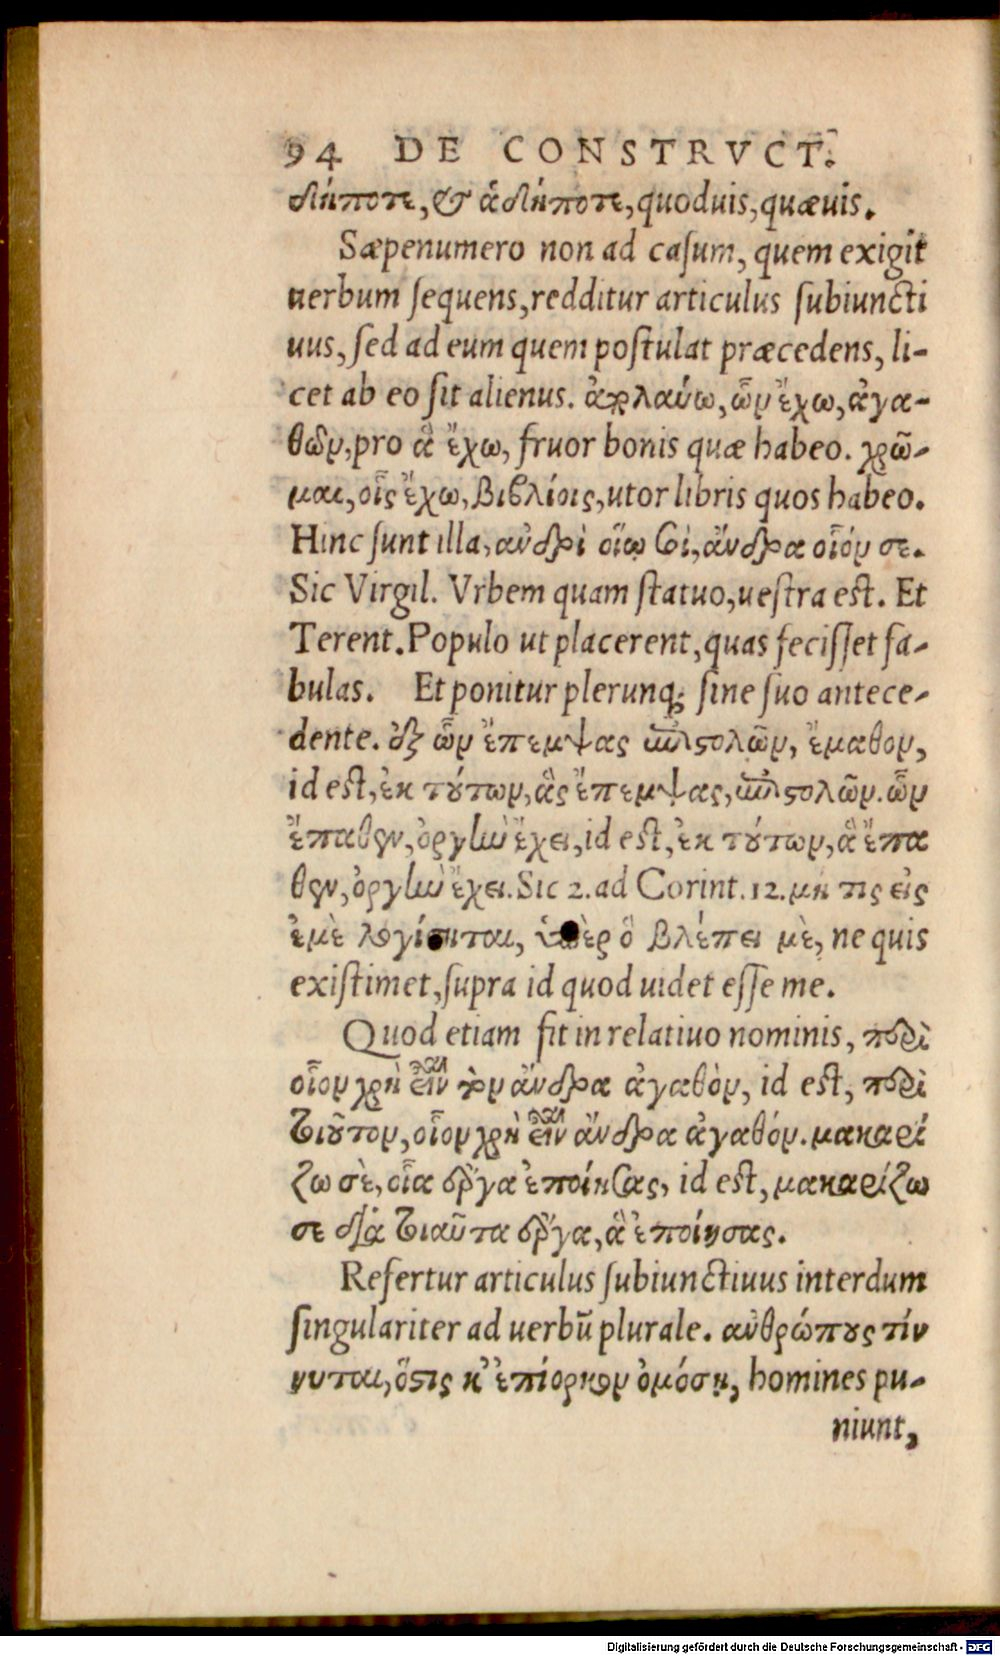 94 DE CONSTRVCT.
δήποτε, & ἁδήποτε, quoduis, quæuis.
Sæpenumero non ad casum, quem exigit
uerbum sequens, redditur articulus subiuncti
uus, sed ad eum quem postulat præcedens, li-
cet ab eo sit alienus. ἀπολαύω, ὧν ἔχω, ἀγα-
θῶν, pro ἃ ἔχω, fruor bonis quæ habeo. χρῶ-
μαι, οἷς ἔχω, βιβλίοις, utor libris quos habeo.
Hinc sunt illa, ἀνδρὶ οἵῳ σοὶ, ἄνδρα οἷόν σε.
Sic Virgil. Vrbem quam statuo, uestra est. Et
Terent. Populo ut placerent, quas fecisset fa-
bulas. Et ponitur plerunq; sine suo antece-
dente. ἐξ ὧν ἔπεμψας ἐπιστολῶν, ἔμαθον,
id est, ἐκ τούτων, ἃς ἔπεμψας, ἐπιστολῶν. ὧν
ἔπαθεν, ὀργὴν ἔχει, id est, ἐκ τούτων, ἃ ἔπα
θεν, ὀργὴν ἔχει. Sic 2. ad Corint. 12. μή τις εἰς
ἐμὲ λογίσηται, ὑπὲρ ὃ βλέπει μὲ, ne quis
existimet, supra id quod uidet esse me.
Quod etiam fit in relatiuo nominis, περὶ
οἷον χρὴ εἶναι τὸν ἄνδρα ἀγαθὸν, id est, περὶ
τοιοῦτον, οἷον χρὴ εἶναι ἄνδρα ἀγαθόν. μακαρί
ζω σὲ, οἷα ἔργα ἐποίησας, id est, μακαρίζω
σε διὰ τοιαῦτα ἔργα, ἃ ἐποίησας.
Refertur articulus subiunctiuus interdum
singulariter ad uerbū plurale. ἀνθρώπους τίν
νυται, ὅστις κ' ἐπίορκον ὀμόσῃ, homines pu-
niunt,
Digitalisierung gefördert durch die Deutsche Forschungsgemeinschaft - DFG